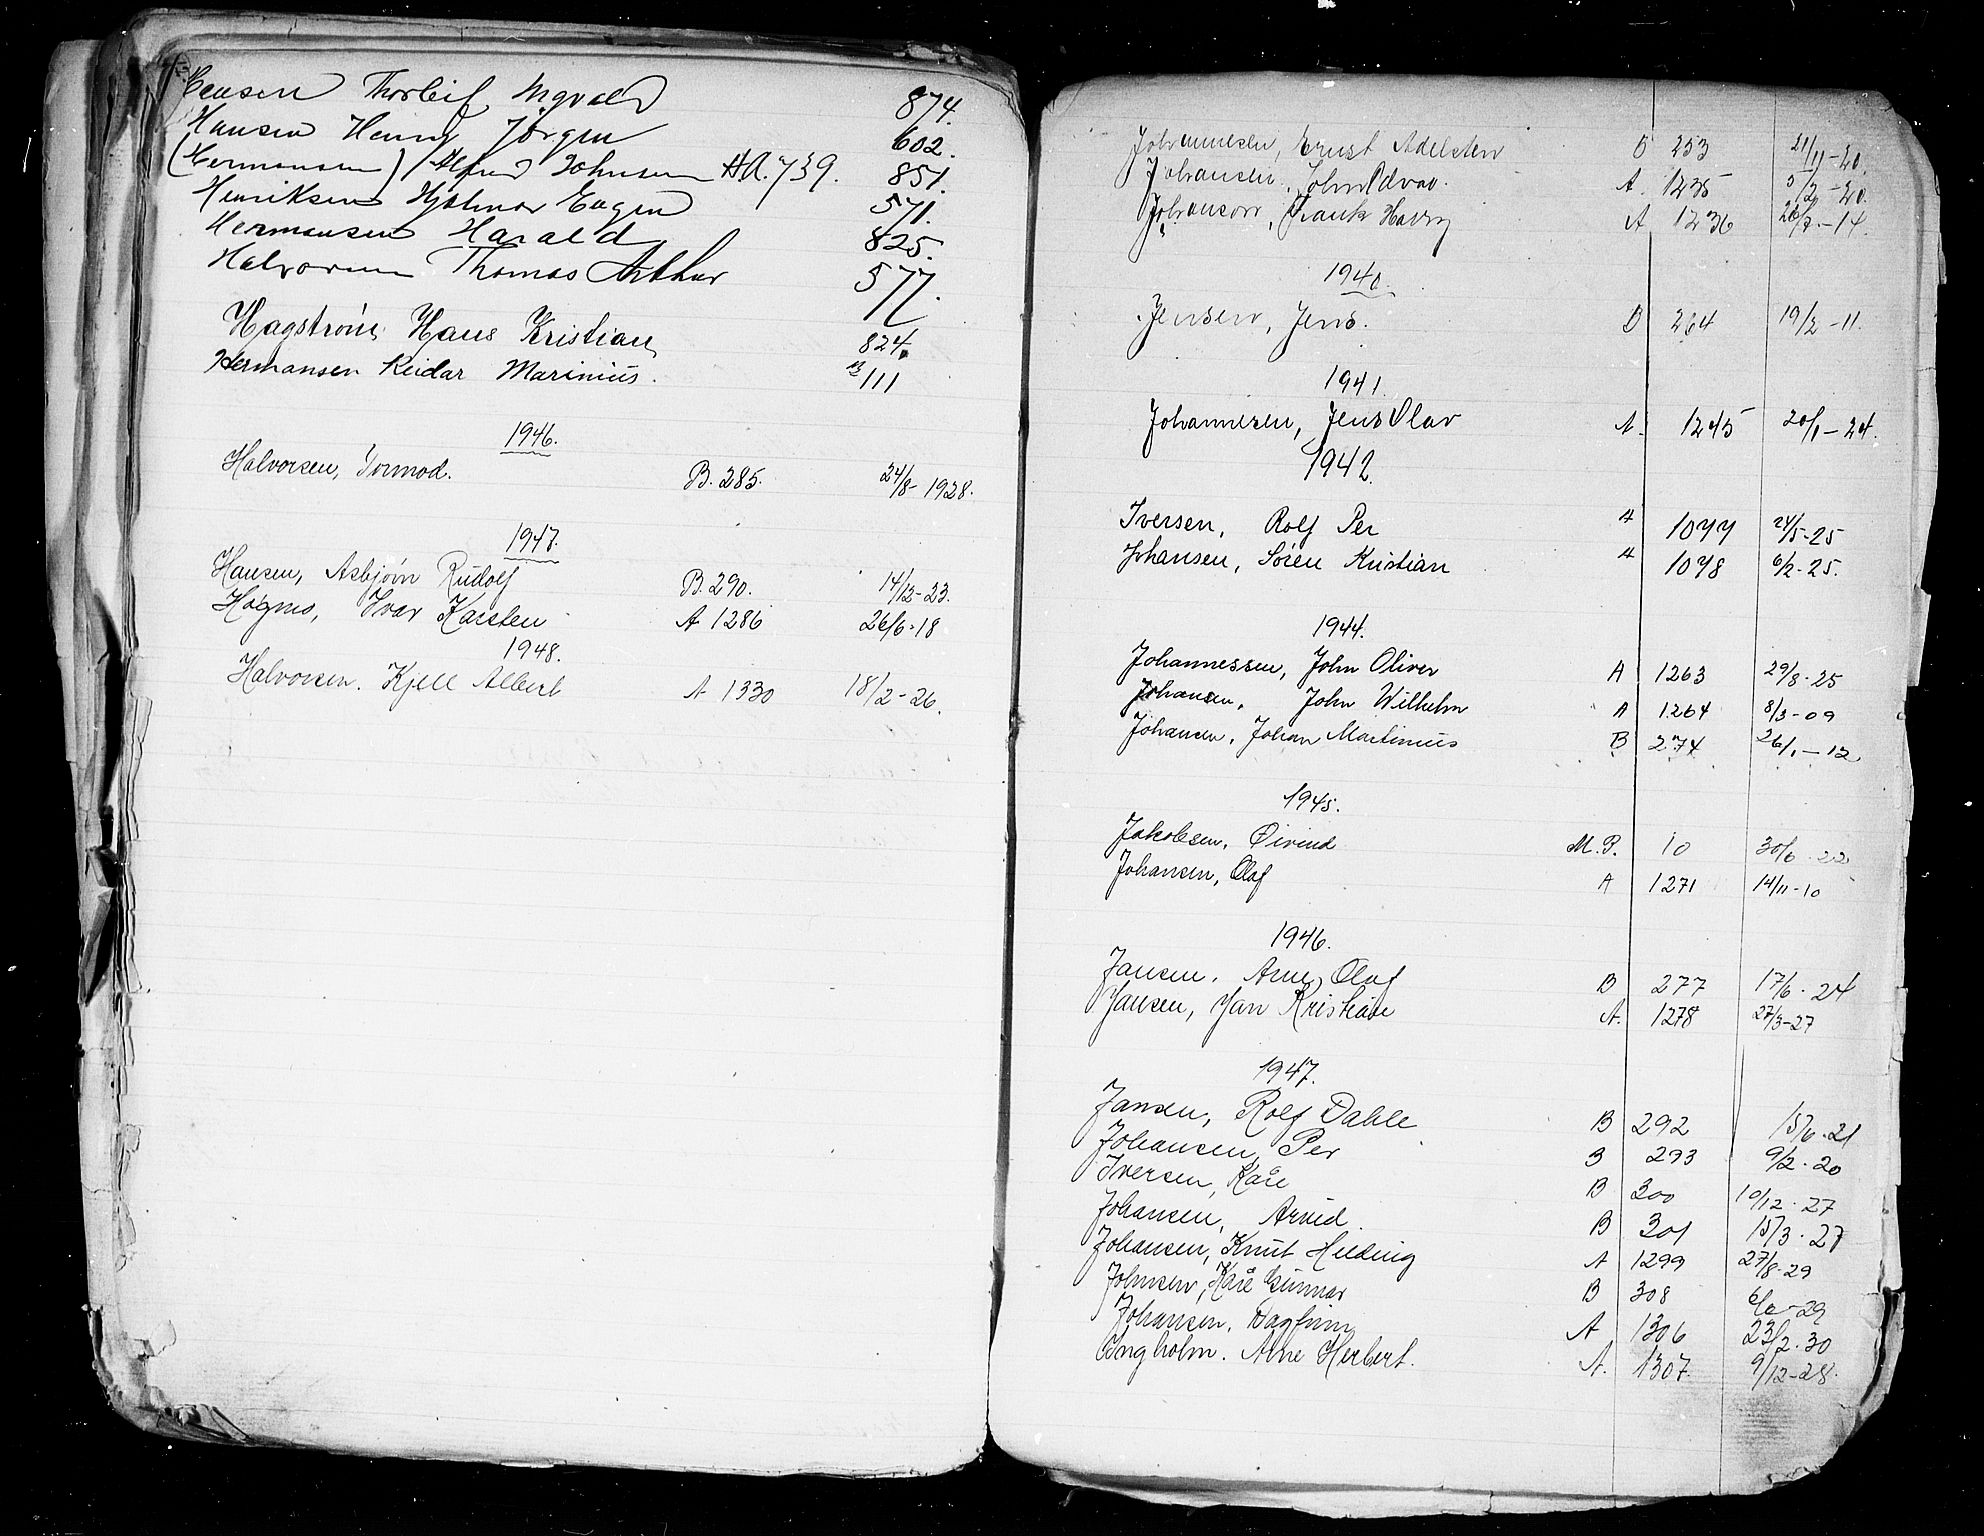 Hansen Thorleif Ingvald 874.
Hansen Henry Jörgen 602.
(Hermansen) Alfred Johnsen HA. 739. 851.
Henriksen Hjalmar Eugen 571.
Hermansen Harald 825.
Halvorsen Thomas Arthur 577.
Hagström, Hans Kristian 824.
Hermansen Reidar Marinius. B 111
1946.
Halvorsen, Tormod. B. 285. 24/8-1928.
1947.
Hansen, Asbjörn Rudolf B. 290. 14/12-23.
Høgmo, Ivar Karsten A 1286 26/6-18
1948.
Halvorsen. Kjell Albert A 1330 18/2-26.
Johannesen, Ernst Adelsten B 253 21/11-20.
Johansen, John Odvar. A. 1235 5/2-20.
Johanson, Frank Harry A 1236 26/7-14.
1940.
Jensen, Jens. B 264 19/2-11.
1941.
Johannesen, Jens Olav A. 1245 20/1-24.
1942.
Iversen, Rolf Per A 1077 24/5-25
Johansen, Sören Kristian A 1078 6/2-25.
1944.
Johannessen, John Oliver A 1263 29/8-25
Johansen, John Wilhelm A 1264 8/3-09
Johansen, Johan Martinius B 274 26/1-12
1945.
Jakobsen, Øivind M.B. 10 30/6-22
Johansen, Olaf A 1271 14/11-10
1946.
Jansen, Arne Olaf B 277 17/6-24
Jansen, Jan Kristian A. 1278 27/3-27
1947.
Jansen, Rolf Dahle B 292 15/6-21
Johansen, Per B 293 9/2-20
Iversen, Kåre B 300 10/12-27
Johansen, Arvid. B 301 15/3-27
Johansen, Knut Hilding A 1299 27/8-29
Johnsen, Kåre Gunnar B 308 -29
Johansen, Dagfinn A 1306 23/2-30
Ingholm. Arne Herbert. A. 1307. 9/12-28.